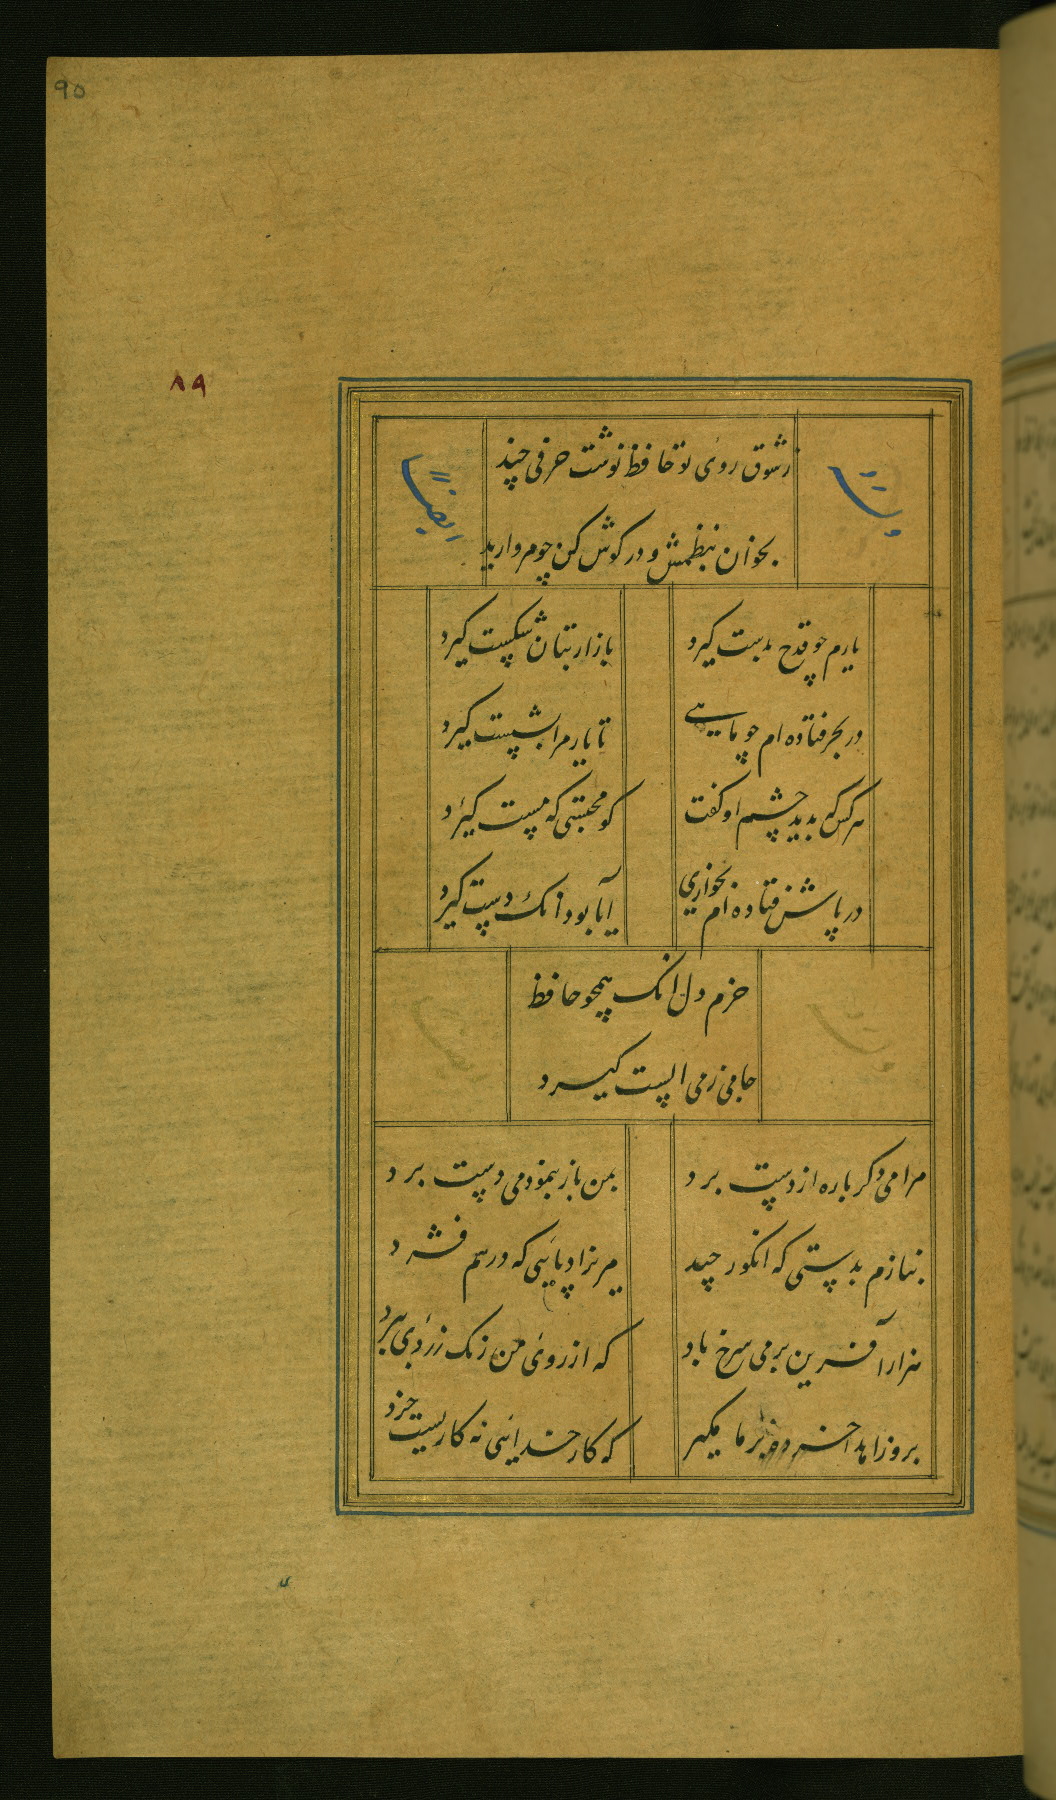 ۹۵
۸۹
زشوق روی تو حافظ نوشت حرفی چند
وله
ایضاً
بخوان بنظمش و در گوش کن چو مروارید
یارم چو قدح بدست گیرد
بازار بتان شکست گیرد
در بحر فتاده ام چو ماهی
تا یار مرا بشست گیرد
هر کس که بدید چشم او گفت
کو محتسبی که مست گیرد
در پاش فتاده ام بخواری
آیا بود آنک دست گیرد
خرم دل آنک همچو حافظ
جامی ز می الست گیرد
مرا می دگر باره از دست برد
بمن باز بنمود می دست برد
بنازم بدستی که انگور چید
مریزاد پایی که در هم فشرد
هزار آفرین بر می سرخ باد
که از روی من رنگ زردی ببرد
برو زاهدا خرده بر ما مگیر
که کار خدایی نه کاریست خرد